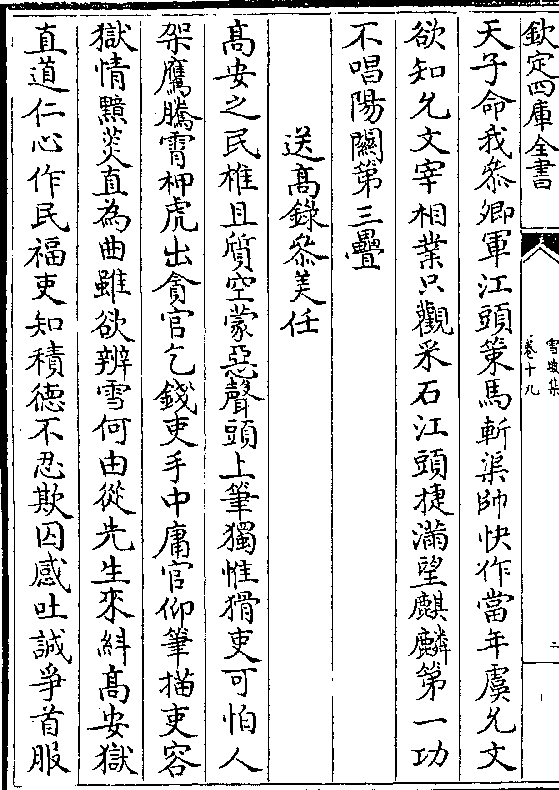 欽定四庫全書
雪坡集
卷十九
二
天子命我叅卿軍江頭策馬斬渠帥快作當年虞允文
欲知允文宰相業只觀采石江頭捷滿望麒麟第一功
不唱陽關第三疊
送高錄叅美任
髙安之民椎且質空蒙惡聲頭上筆獨惟猾吏可怕人
架鷹騰霄柙虎出貪官乞錢吏手中庸官仰筆描吏容
獄情黯炎直為曲雖欲辨雪何由從先生來糾髙安獄
直道仁心作民福吏知積德不忍欺囚感吐誠爭首服